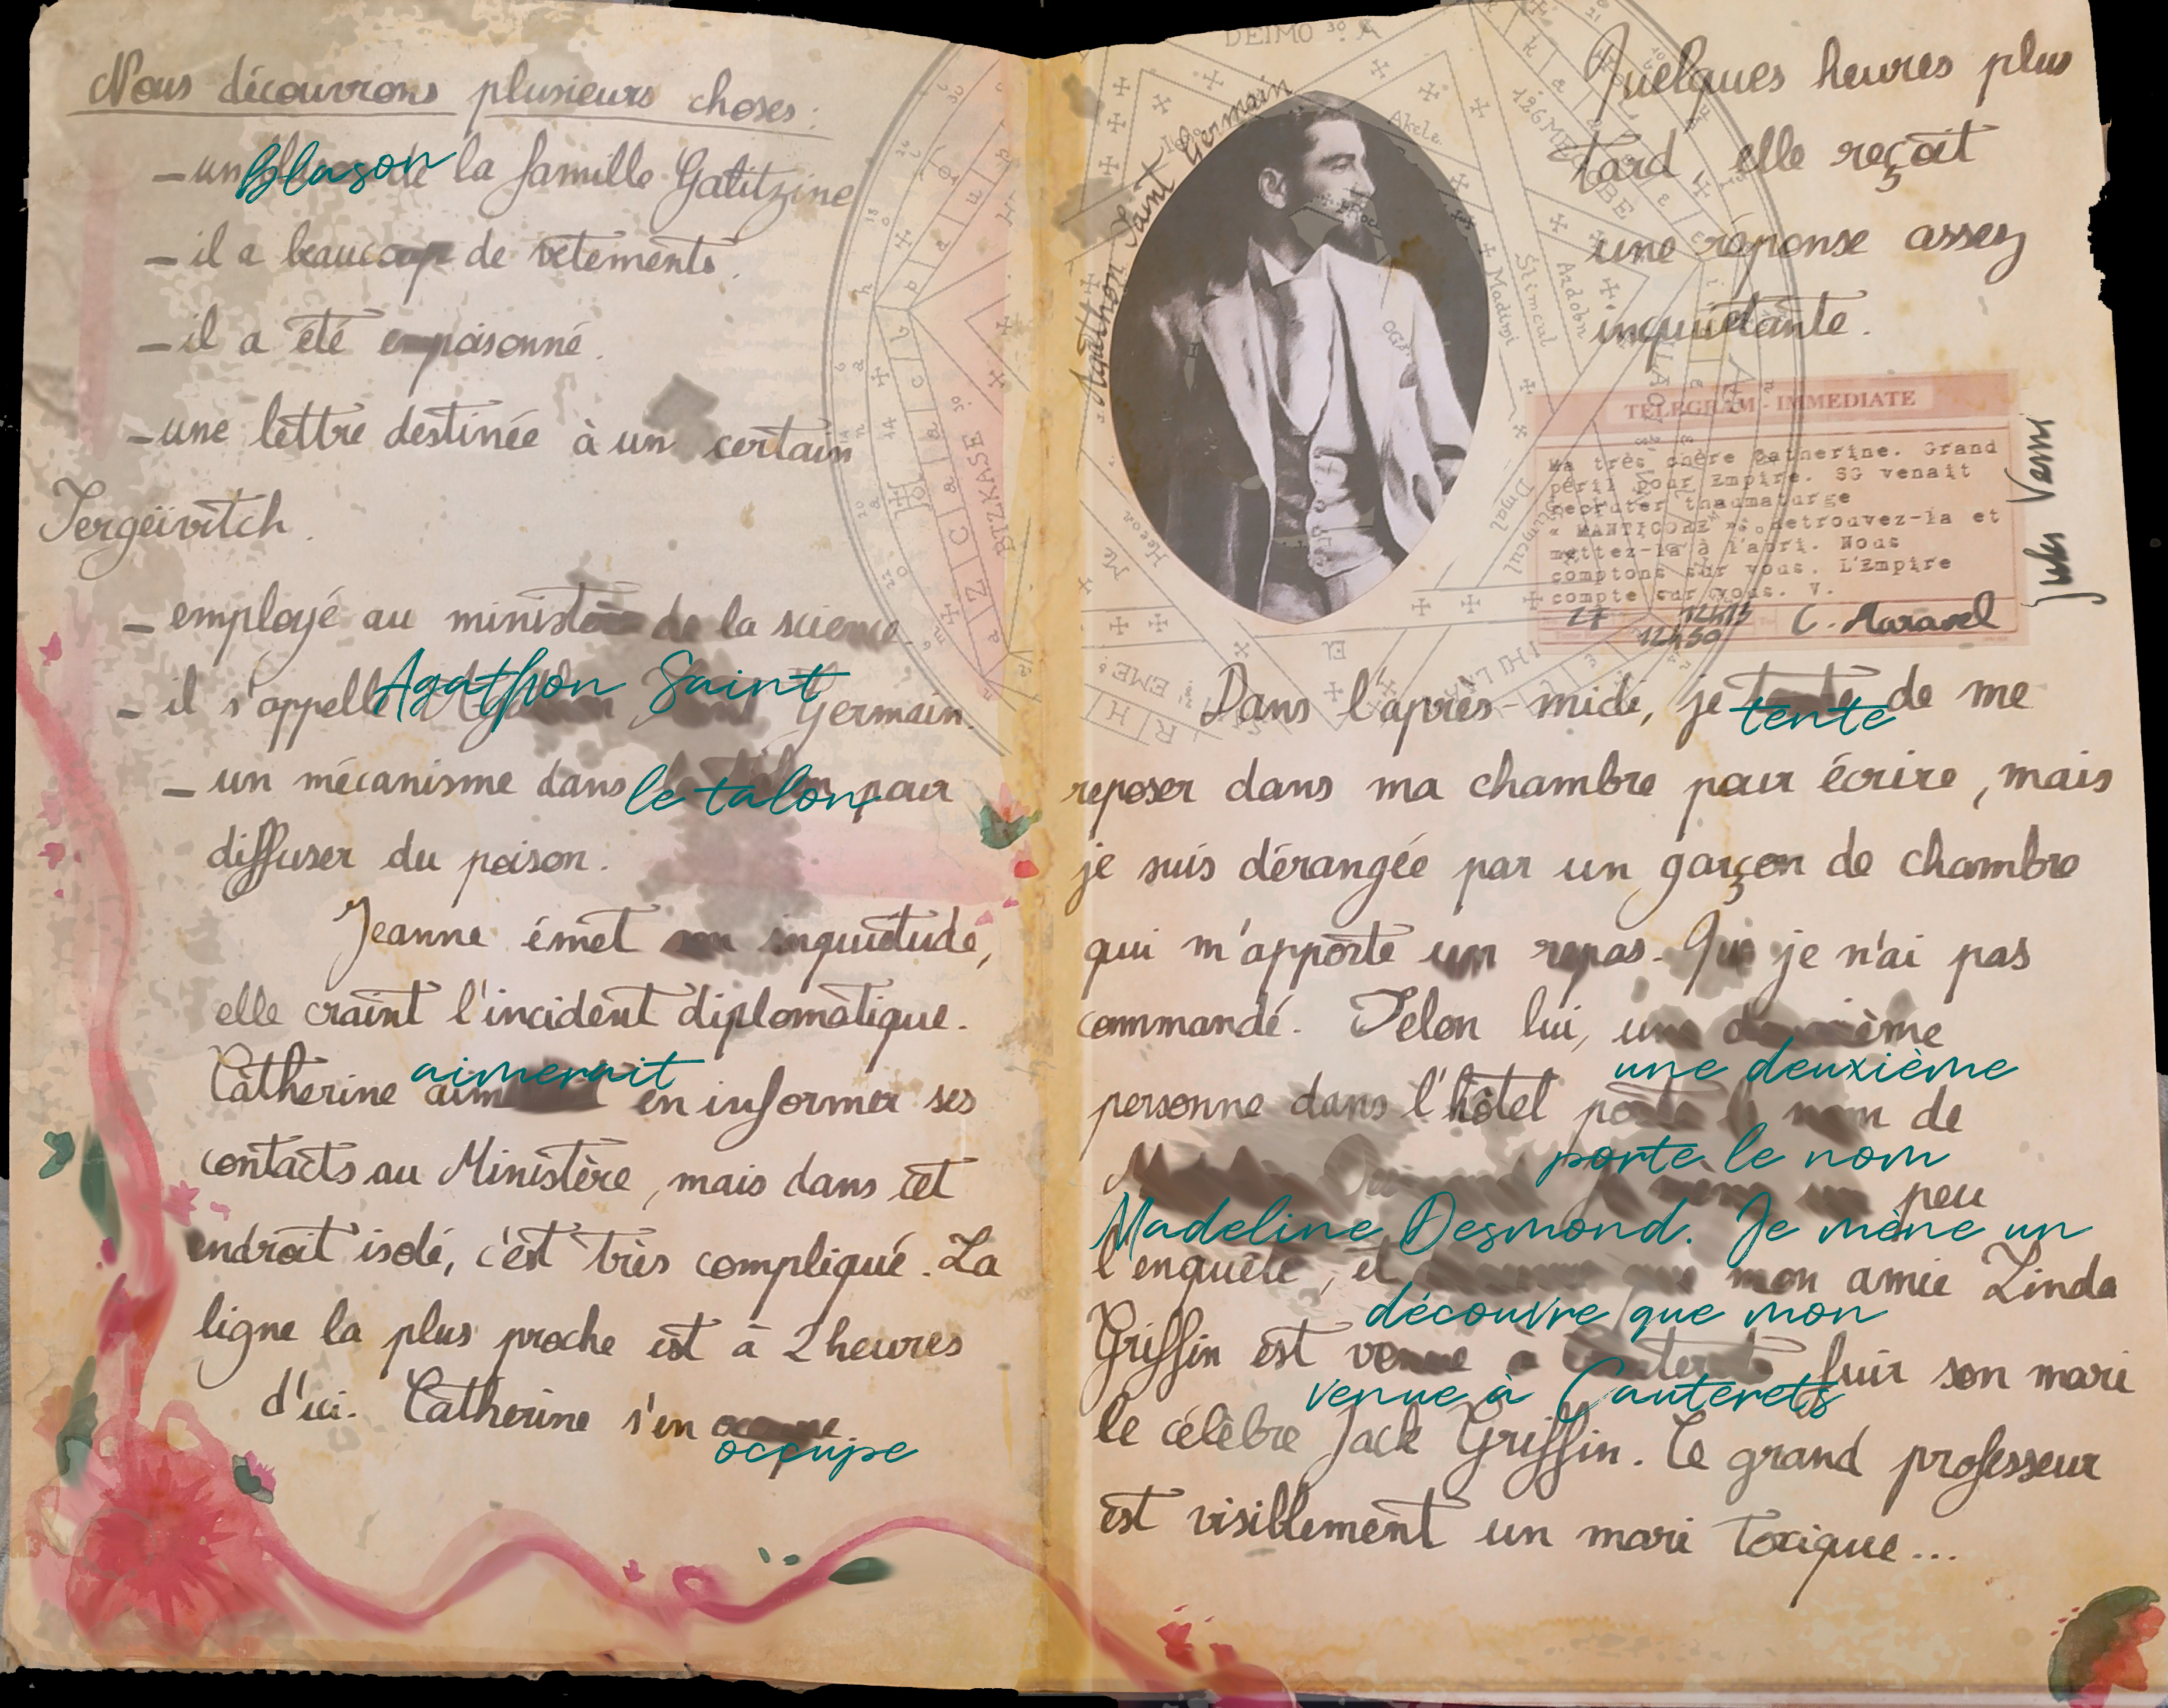 Nous découvrons plusieurs choses :
- un Blason de la famille Galitzine
- il a beaucoup de vêtements.
- il a été empoisonné.
- une lettre destinée à un certain
Sergeïvitch.
- employé au ministère de la science
- il s'appelle Agathon Saint Germain.
- un mécanisme dans le talon pour
diffuser du poison.
Jeanne émet son inquiétude,
elle craint l'incident diplomatique.
Catherine aimerait en informer ses
contacts au Ministère, mais dans cet
endroit isolé, c'est très compliqué. La
ligne la plus proche est à 2 heures
d'ici. Catherine s'en occupe
Agathon Saint Germain
Quelques heures plus
tard, elle reçoit
une réponse assez
inquiétante.
TELEGRAM - IMMEDIATE
Ma très chère Catherine. Grand
péril pour Empire. SG venait
recruter thaumaturge
« MANTICORE ». Retrouvez-la et
mettez-la à l'abri. Nous
comptons sur vous. L'Empire
compte sur vous. V.
27 12h15
12h50 C. Maravel
Jules Verne
Dans l'après-midi, je tente de me
reposer dans ma chambre pour écrire, mais
je suis dérangée par un garçon de chambre
qui m'apporte un repas. Que je n'ai pas
commandé. Selon lui, une deuxième
personne dans l'hôtel porte le nom de
Madeline Desmond. Je mène un peu
l'enquête, et découvre que mon amie Linda
Griffin est venue à Cauterets fuir son mari
le célèbre Jack Griffin. Ce grand professeur
est visiblement un mari toxique...
DEIMO 30 A
BTZKASE
Akele
Ardobn
Stimcul
Madimi
Heeoa
EME